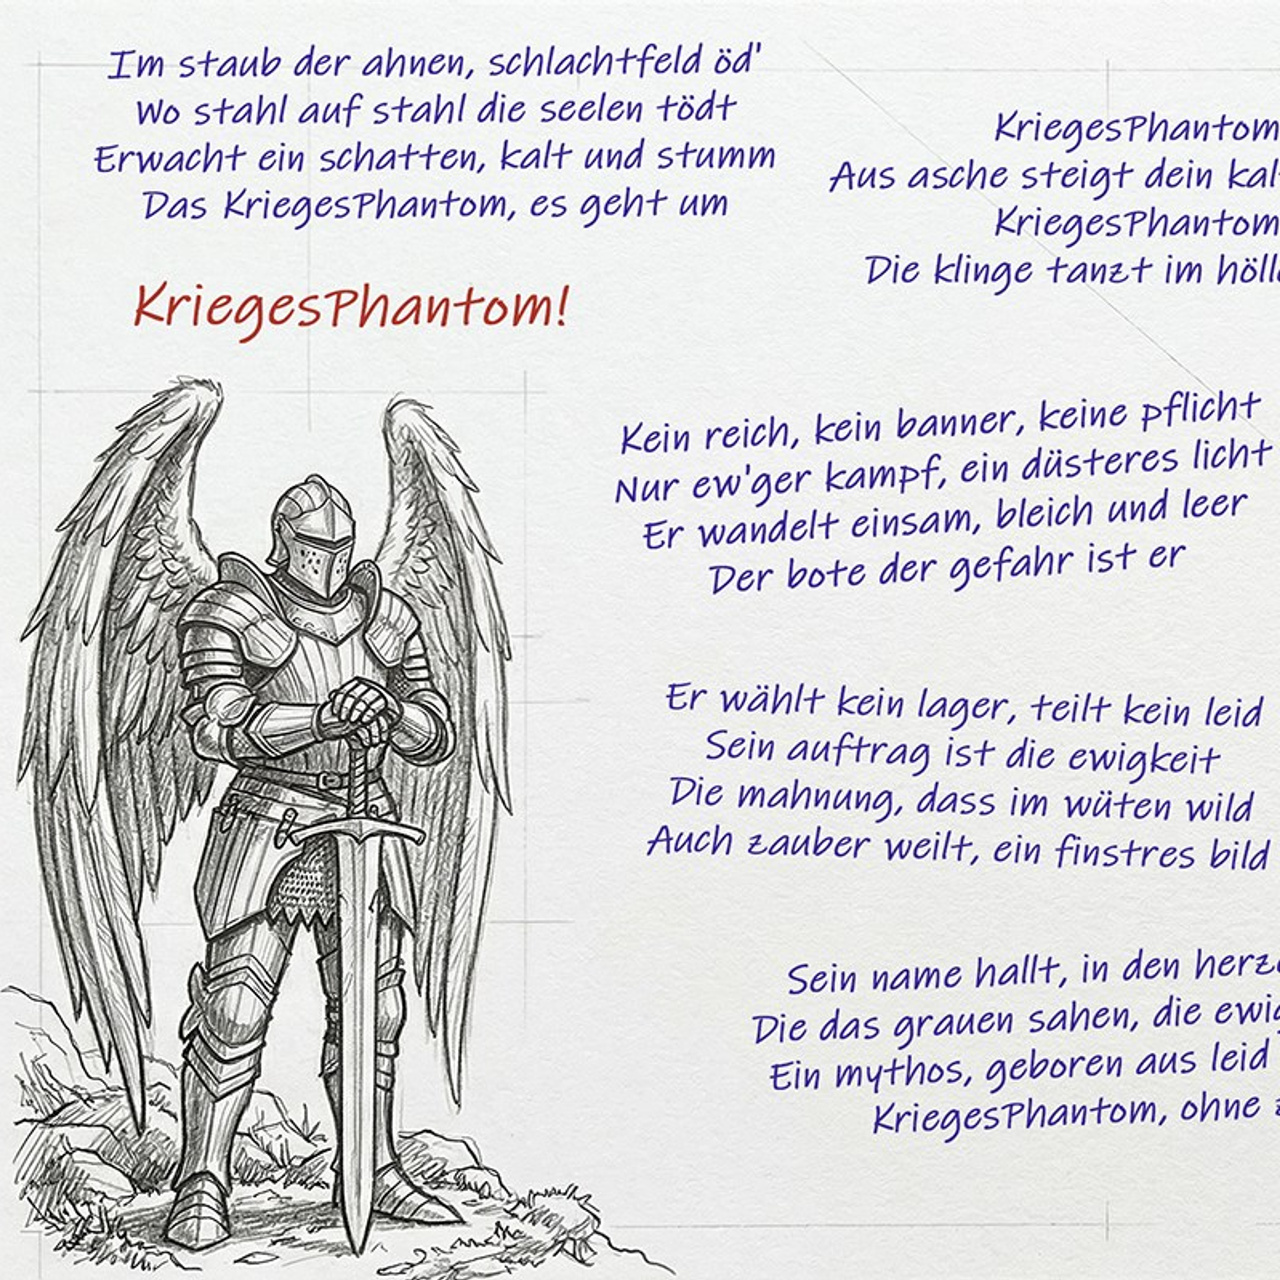 Im staub der ahnen, schlachtfeld öd'
Wo stahl auf stahl die seelen tödt
Erwacht ein schatten, kalt und stumm
Das KriegesPhantom, es geht um
KriegesPhantom!
KriegesPhantom
Aus asche steigt dein
KriegesPhantom
Die klinge tanzt im
Kein reich, kein banner, keine pflicht
Nur ew'ger kampf, ein düsteres licht
Er wandelt einsam, bleich und leer
Der bote der gefahr ist er
Er wählt kein lager, teilt kein leid
Sein auftrag ist die ewigkeit
Die mahnung, dass im wüten wild
Auch zauber weilt, ein finstres bild
Sein name hallt, in den
Die das grauen sahen, die
Ein mythos, geboren aus leid
KriegesPhantom, ohne